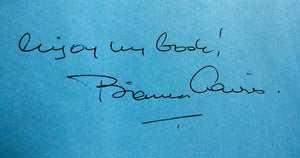 Enjoy my book!
Bianca